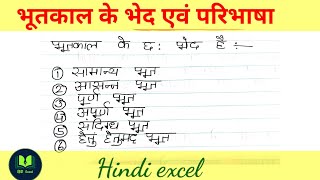 भूतकाल के भेद एवं परिभाषा
भूतकाल के छः भेद है :-
① सामान्य भूत
② आसन्न भूत
③ पूर्ण भूत
④ अपूर्ण भूत
⑤ संदिग्ध भूत
⑥ हेतु हेतुमद भूत
Hindi excel